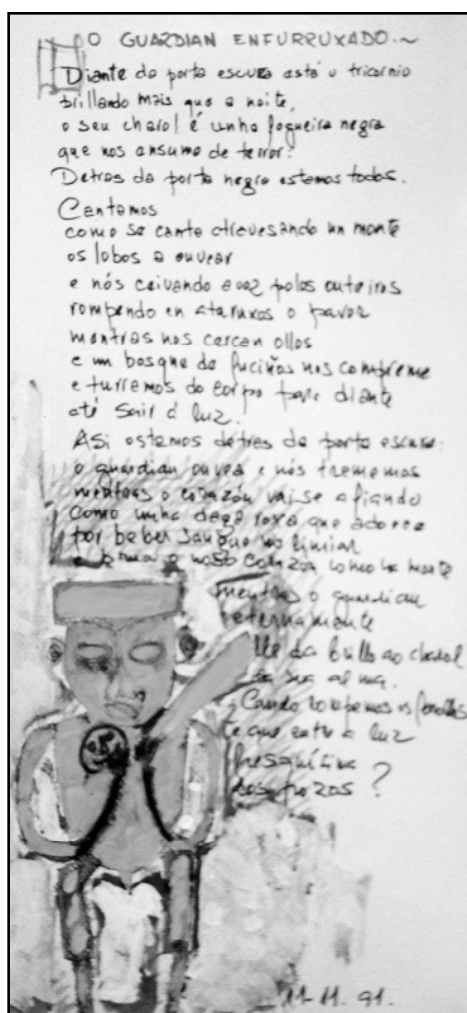 O GUARDIAN ENFURRUXADO.~
Diante da porta escura está o tricornio
brillando mais que a noite,
o seu charol é unha fogueira negra
que nos ensume de terror.
Detras da porta negra estamos todos.
Cantamos
como se canta atravesando un monte
os lobos a ouvear
e nós ceivando a voz polos outeiros
rompendo en aturuxos o pavor
mentras nos cercan ollos
e un bosque de fuciños nos comprime
e turramos do corpo para diante
até sair á luz.
Asi estamos detras da porta escura:
o guardian ouvea e nós trememos
mentras o corazón vai-se afiando
como unha daga roxa que adoece
por beber sangue no limiar
e brua o noso corazón como la monte
mentras o guardian
eternamente
lle da brillo ao charol
da sua alma.
Cando rompemos os ferrollos
e que entre a luz
nas prazas?
11-11-91.